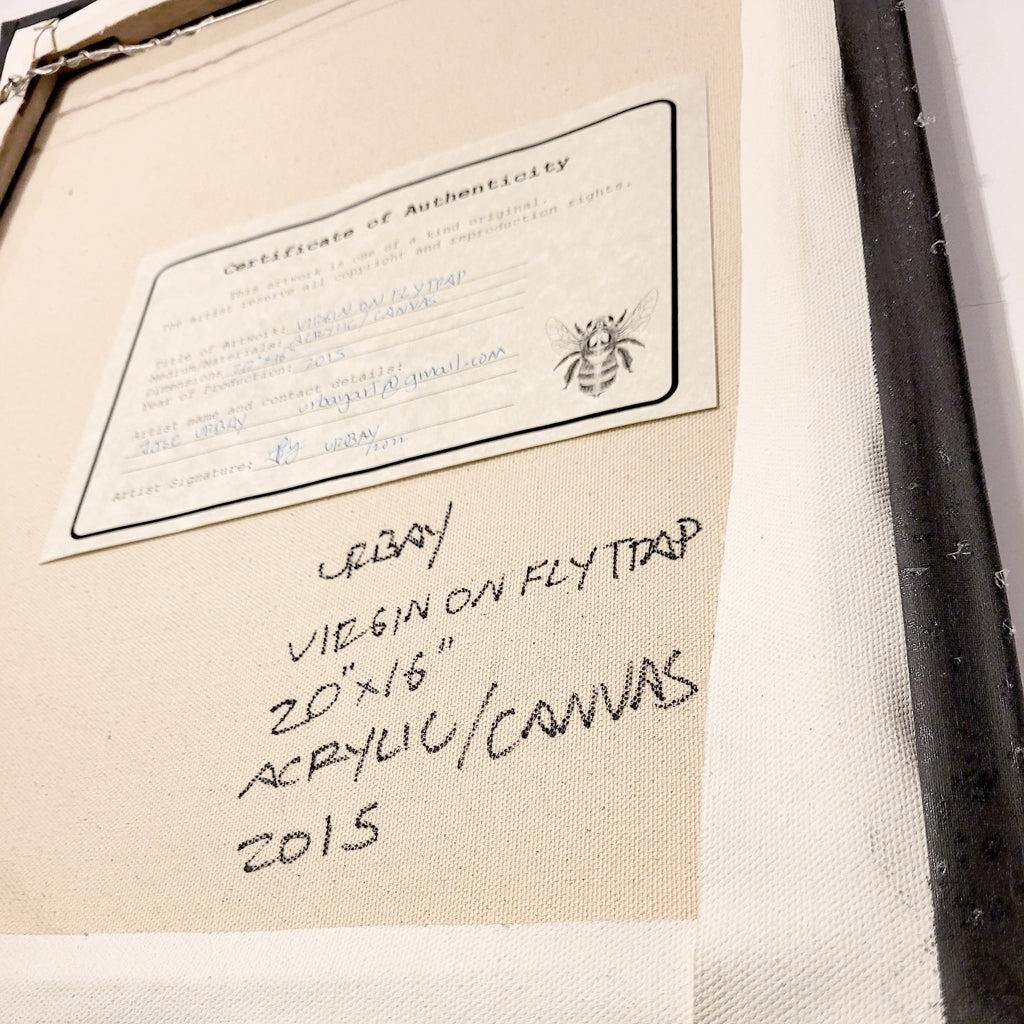 Certificate of Authenticity
This artwork is one of a kind original.
The artist reserve all copyright and reproduction rights.
Title of Artwork: VIRGIN ON FLYTRAP
Medium/Materials: ACRYLIC/CANVAS
Dimensions: 20"x16"
Year of Production: 2015
Artist name and contact details:
JOSE URBAY urbayart@gmail.com
Artist Signature: By URBAY
URBAY
VIRGIN ON FLYTRAP
20"x16"
ACRYLIC/CANVAS
2015